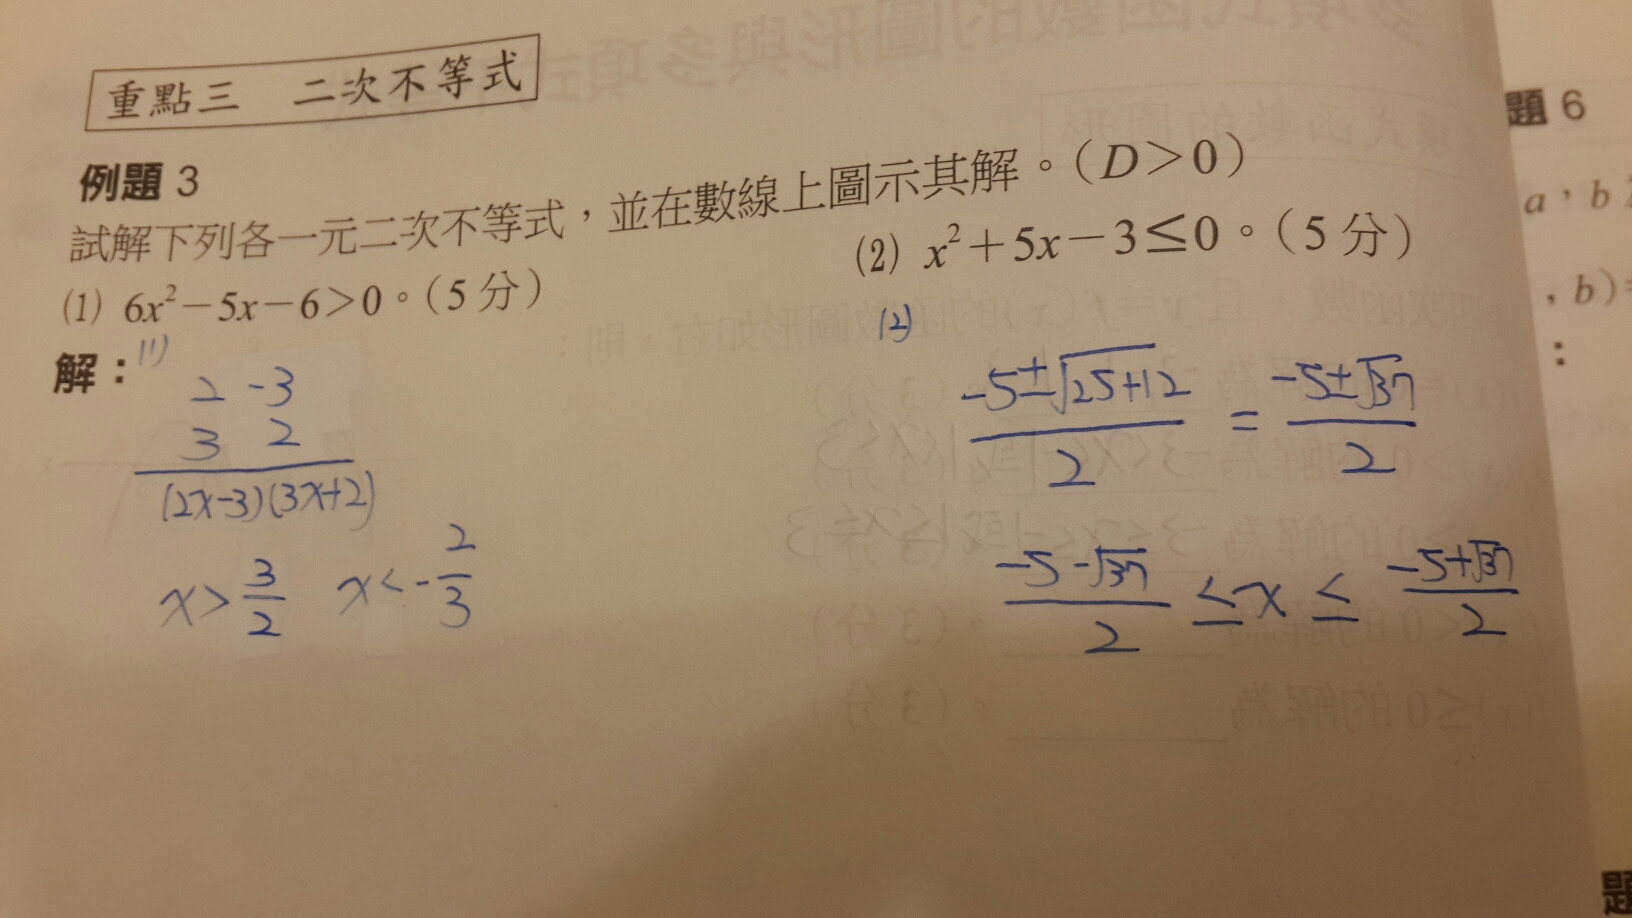 重點三 二次不等式
例題 3
試解下列各一元二次不等式，並在數線上圖示其解。(D>0)
(1) 6x²－5x－6>0。(5 分) (2) x²＋5x－3≤0。(5 分)
解：(1)
2 -3
3 2
(2x-3)(3x+2)
x> 3/2 x< -2/3
(2)
(-5±√25+12)/2 = (-5±√37)/2
(-5-√37)/2 ≤ x ≤ (-5+√37)/2
題 6
a，b
，b)=
：
題